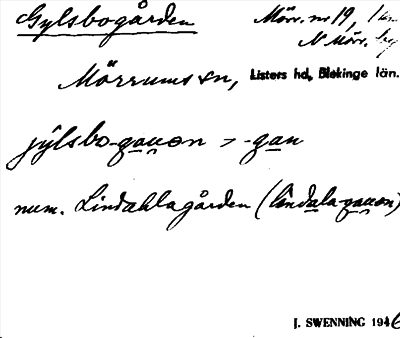 Gylsbogården Mörr. nr 19, 1
N Mörr. by
Mörrums sn, Listers hd, Blekinge län.
jylsbo-gauon > -gau
num. Lindahlagården (lindala-gauon)
J. SWENNING 1946